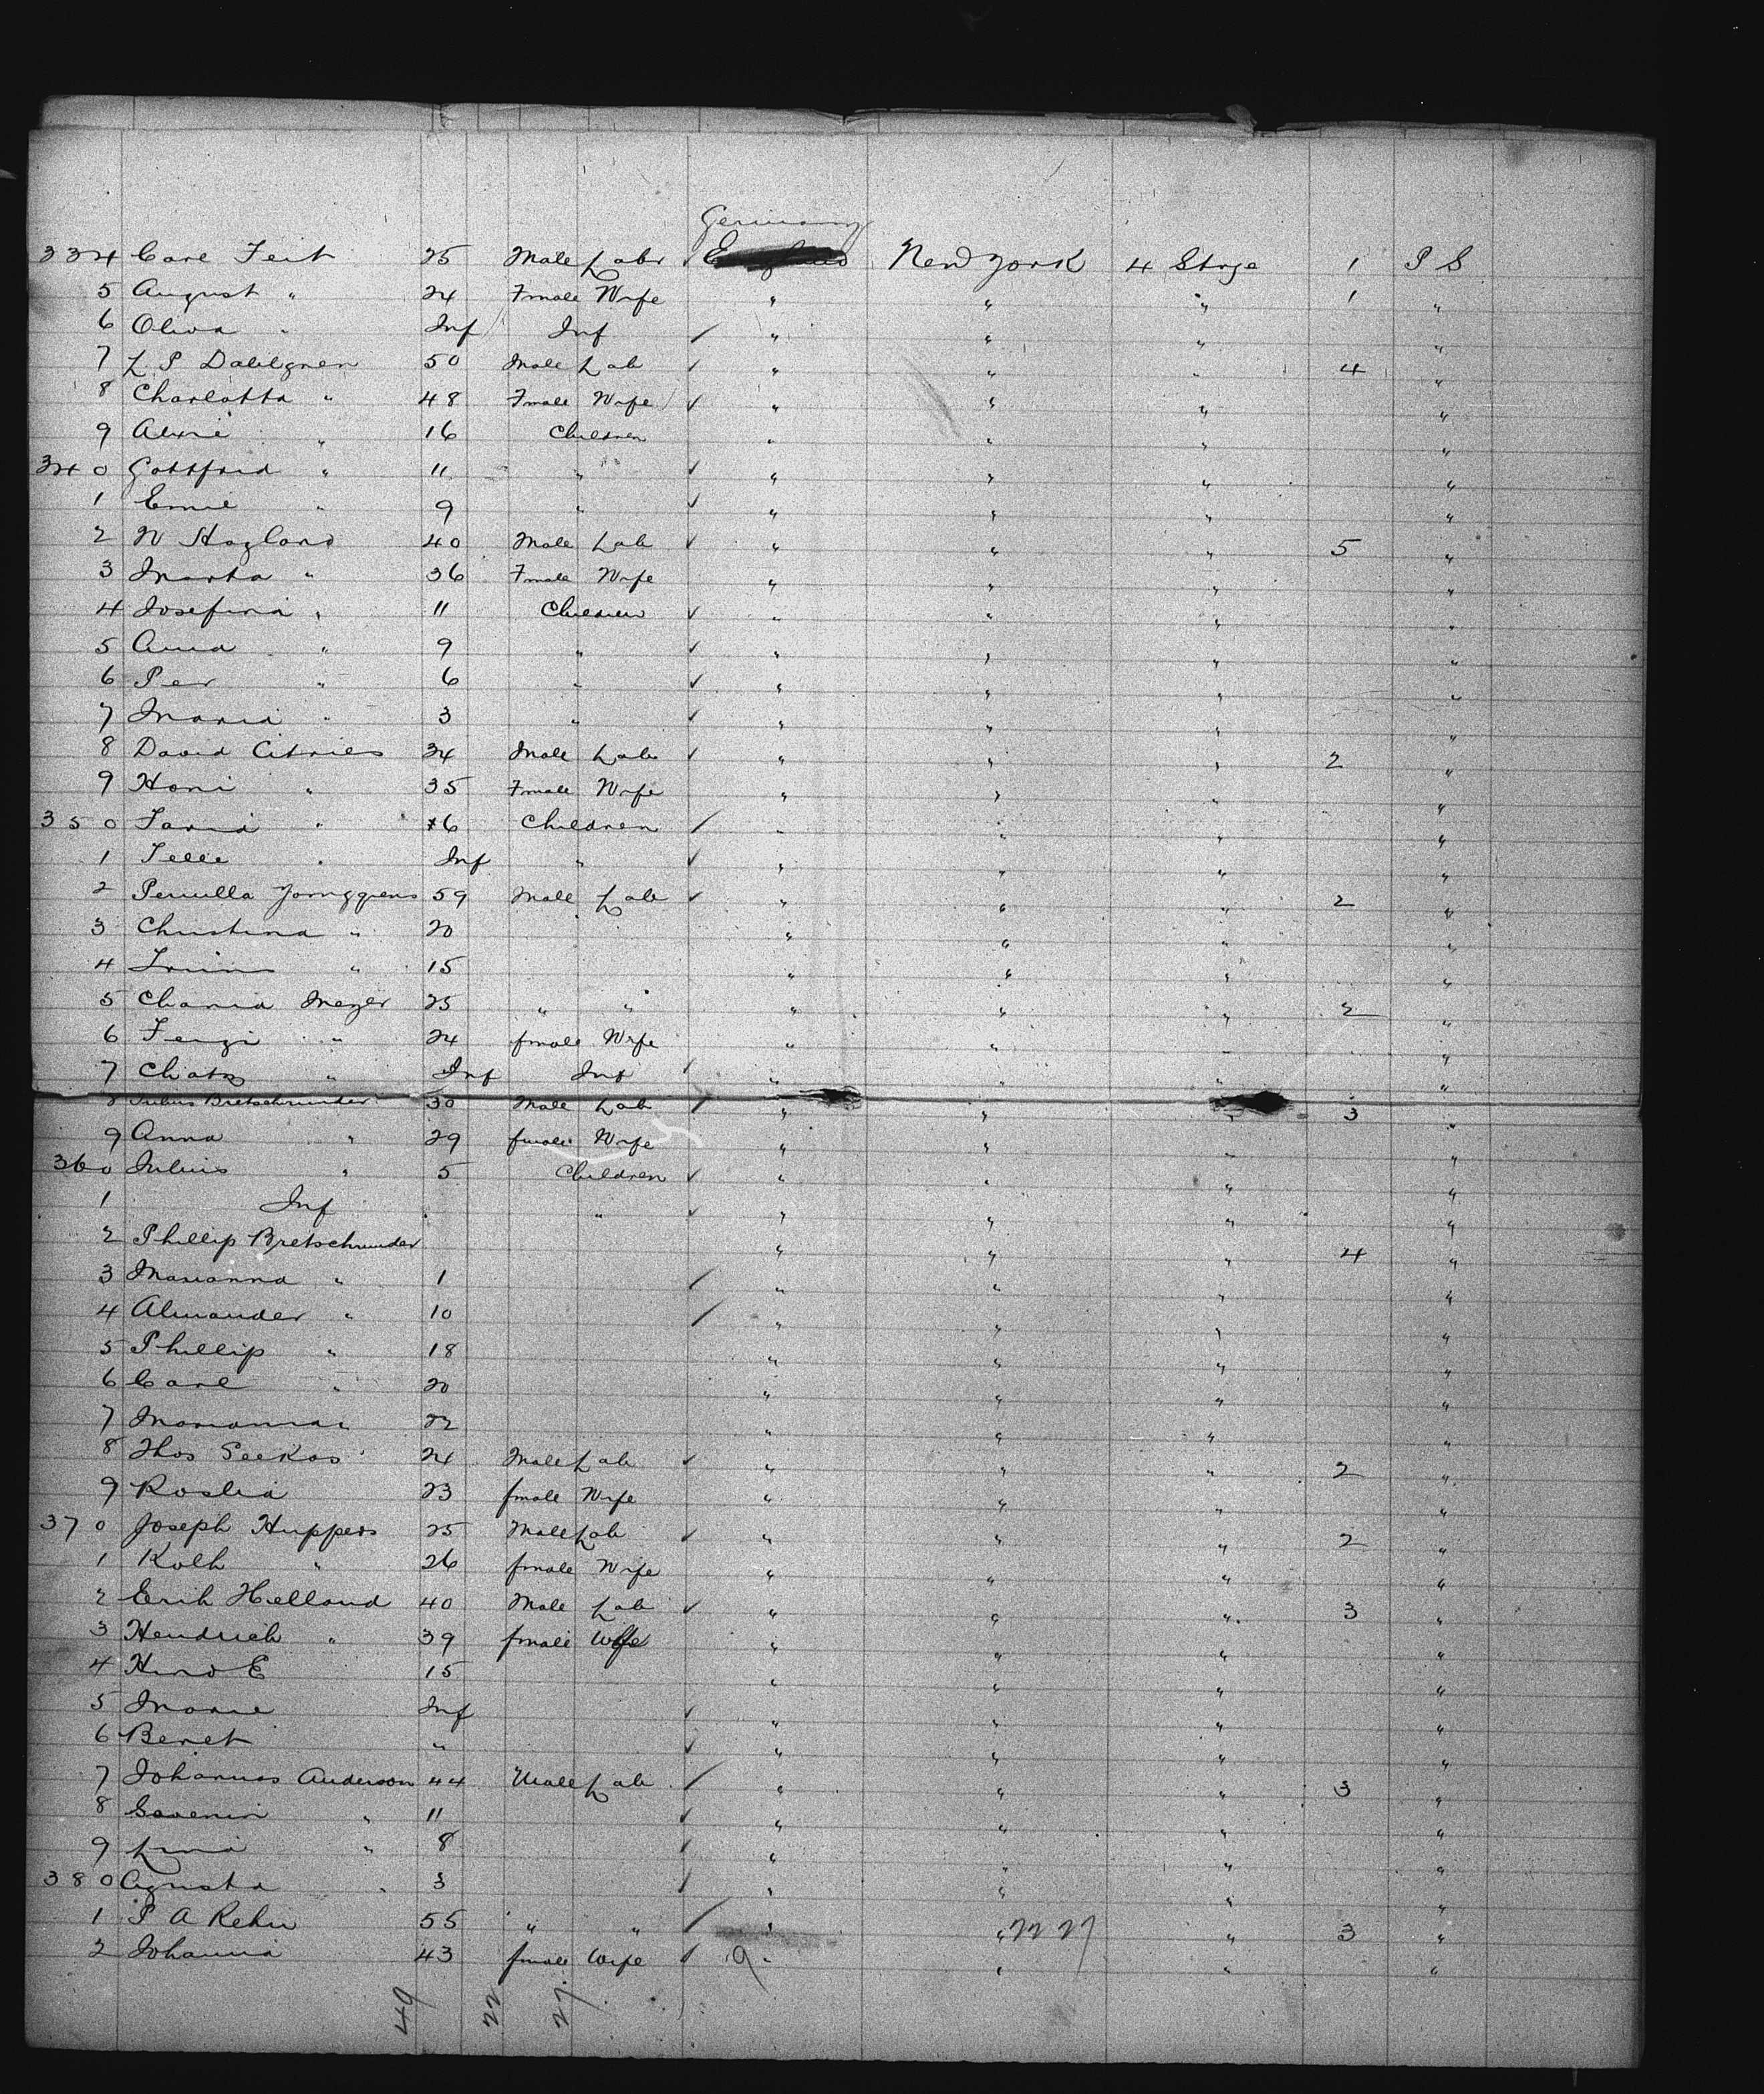 Germany
334 Carl Feit 25 Male Labr New York 4 Stege 1 P S
5 August " 24 Fmale Wife " " " 1 "
6 Oliva " Inf Inf " " " "
7 L P Dahlgren 50 Male Lab " " " 4 "
8 Charlotta " 48 Fmale Wife " " " "
9 " 16 Children " " " "
340 Gottfrid " 11 " " " " "
1 Emil " 9 " " " " "
2 N Hagland 40 Male Lab " " " 5 "
3 Marta " 36 Fmale Wife " " " "
4 Josefina " 11 Children " " " "
5 Anna " 9 " " " " "
6 Per " 6 " " " " "
7 Maria " 3 " " " " "
8 David 34 Male Lab " " " 2 "
9 Honi " 35 Fmale Wife " " " "
350 " 6 Children " " " "
1 " Inf " " " " "
2 Pernilla 59 Male Lab " " " 2 "
3 Christina " 20 " " " "
4 " 15 " " " "
5 Meyer 25 " " " " " 2 "
6 " 24 fmale Wife " " " "
7 " Inf Inf " " " "
8 Julius Bretschneider 30 Male Lab " " " 3 "
9 Anna " 29 fmale Wife " " " "
360 Julius " 5 Children " " " "
1 Inf " " " " "
2 Phillip Bretschneider " " " 4 "
3 Marianna " 1 " " " "
4 " 10 " " " "
5 Phillip " 18 " " " "
6 Carl " 20 " " " "
7 22 " " " "
8 Thos Seekas 24 Male Lab " " " 2 "
9 Roslia 23 fmale Wife " " " "
370 Joseph Huppers 25 Male Lab " " " 2 "
1 Kolh " 26 fmale Wife " " " "
2 Erik Helland 40 Male Lab " " " 3 "
3 Hendrich " 39 fmale Wife " " " "
4 E 15 " " " "
5 Marie Inf " " " "
6 Beret " " " " "
7 Johannes Anderson 44 Male Lab " " " 3 "
8 " 11 " " " "
9 " 8 " " " "
380 Agusta " 3 " " " "
1 P A Rehn 55 " " " " 22 27 " 3 "
2 Johanna 43 fmale Wife 9 " " " "
49 22 27